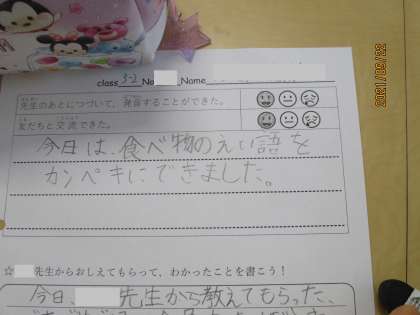 class 3-2 No Name
先生のあとにつづいて、発音することができた。
友だちと交流できた。
今日は、食べ物のえい語を
カンペキにできました。
☆ 先生からおしえてもらって、わかったことを書こう！
今日、 先生から教えてもらった、